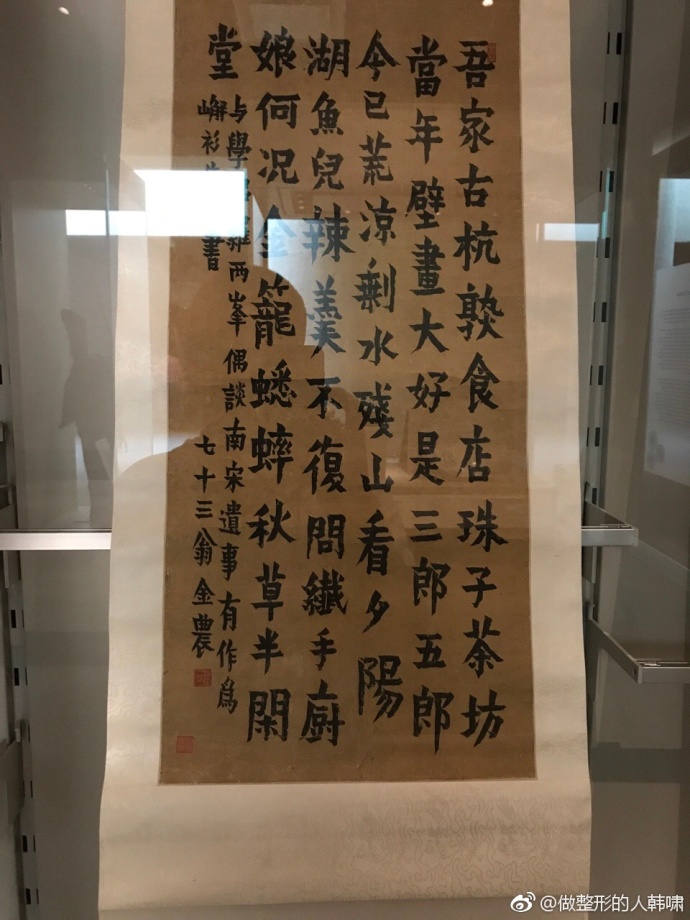 吾家古杭熟食店珠子茶坊
當年壁畫大好是三郎五郎
今已荒涼剩水殘山看夕陽
湖魚兒辣羹不復問纖手廚
娘何况金籠蟋蟀秋草半閑
堂
与學羅兩峯偶談南宋遺事有作爲
嶰衫書
七十三翁金農
@做整形的人韩啸